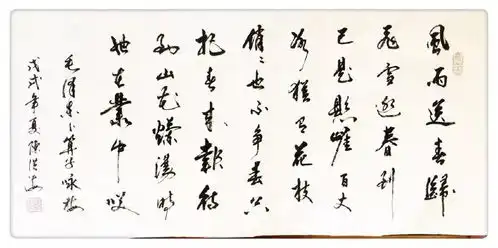 風雨送春歸
飛雪迎春到
已是懸崖百丈
冰猶有花枝
俏〻也不争春只
把春来報待
到山花爛漫時
她在叢中笑
毛澤東卜算子咏梅
戊戌年夏陳